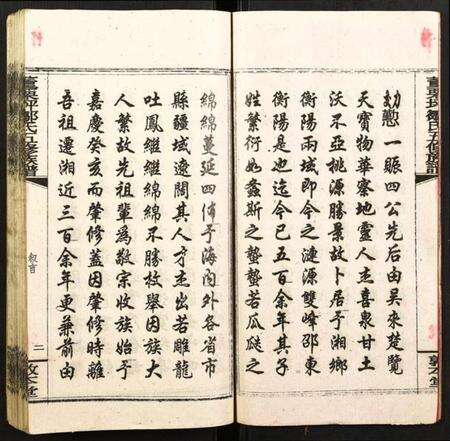 勉懃一賑四公先后由吴来楚覽
天寶物華察地靈人杰喜泉甘土
沃不亞桃源勝景故卜居予湘鄉
衡陽兩域即今之漣源雙峰邵東
衡陽是也迄今已五百余年其子
姓繁衍如螽斯之蟄蟄若瓜瓞之
綿綿蔓延四佈予海内外各省市
縣疆域遼闊其人才杰出若雕龍
吐鳳繼繼綿綿不勝枚舉因族大
人繁故先祖輩為敬宗收族始予
嘉慶癸亥而肇修蓋因肇修時離
吾祖遷湘近三百余年更兼前由
鄒氏五修族譜
敦本堂
叙言
二
鄒氏五修族譜
敦本堂